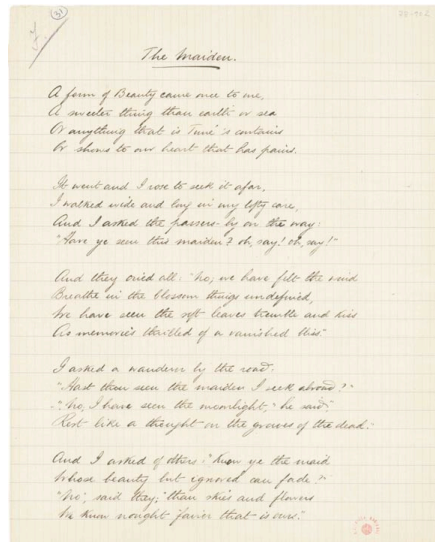 37
The Maiden.
A form of Beauty came once to me,
A sweeter thing than earth or sea
Or anything that is Time's contains
Or shows to our heart that has pains.
It went and I rose to seek it afar,
I walked wide and long in my lofty care,
And I asked the passers-by on the way:
"Have ye seen this maiden? oh, say! oh, say!"
And they cried all: "No, we have felt the wind
Breathe in the blossom things undefined,
We have seen the soft leaves tremble and kiss
As memories thrilled of a vanished bliss"
I asked a wanderer by the road:
"Hast thou seen the maiden I seek abroad?"
"No, I have seen the moonlight," he said,
Rest like a thought on the graves of the dead."
And I asked of others: "Know ye the maid
Whose beauty but ignored can fade?"
"No", said they; "than skies and flowers
We know nought fairer that is ours."